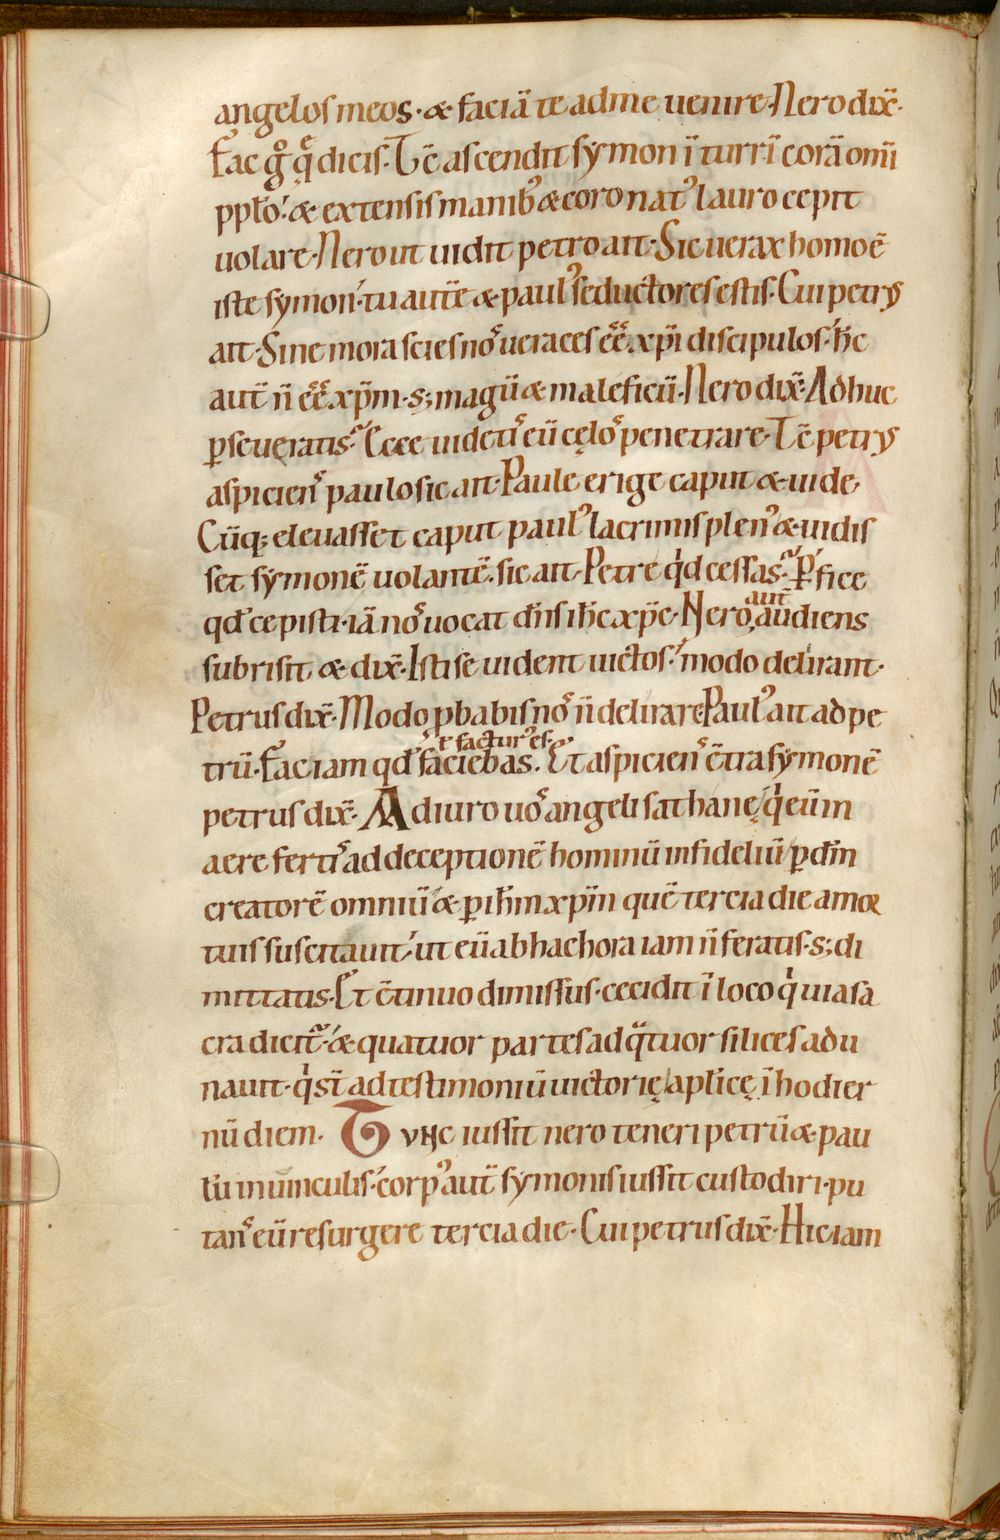 angelos meos · & faciā te ad me uenire · Nero dix̄ ·
Fac gͦ qͣ dicis · Tc̄ ascendit symon ī turrī corā om̄i
ppl̄o ·́ & extensis manibꝰ & coronatꝰ lauro cepit
uolare · Nero ut uidit petro ait · Sic uerax homo ē
iste symon ·́ tu autē & paulꝰ seductores estis · Cui petrus
ait · Sine mora scies noˢ ueraces ēē xp̄i discipulos ·́ hc̄
aut̄ n̄ ēē xp̄m · s; magū & maleficū · Nero dix̄ · Adhuc
ꝑseueratis · Ecce uidetis eū cęloˢ penetrare · Tc̄ petrus
aspicienˢ paulo sic ait · Paule erige caput & uide
Cūq; eleuasset caput paulꝰ lacrimis plenꝰ & uidis
set symonē uolantē · sic ait · Petre qⁱd cessas · ꝑfice
qđ cepisti · iā noˢ uocat dn̄s ih̄c xp̄c · Nero aut̄ audiens
subrisit & dix̄ · Isti se uident uictos ·́ modo delirant ·
Petrus dix̄ · Modo ꝓbabis noˢ n̄ delirare Paulꝰ ait ad pe
trū · Fac iam qđ faciebas · ł facturꝰ es · Et aspicienˢ c̄tra symonē
petrus dix̄ · Adiuro uoˢ angeli sathanę qⁱ eūm in
aere fertis ad deceptionē hominū infideliū ꝑ dm̄
creatorē omniū & ꝑ ih̄m xp̄m quē tercia die a mor
tuis suscitauit ·́ ut eū ab hac hora iam n̄ feratis · s; di
mittatis · Et c̄tinuo dimissus · cecidit ī loco qⁱ uia sa
cra dicit̄ ·́ & quatuor partes ad qͣtuor silices adu
nauit · qⁱ st̄ ad testimoniū uictorię apl̄icę ī hodier
nū diem · Tunc iussit nero teneri petrū & pau
lū in uinculis ·́ corpꝰ aut̄ symonis iussit custodiri · pu
tanˢ eū resurgere tercia die · Cui petrus dix̄ · Hic iam